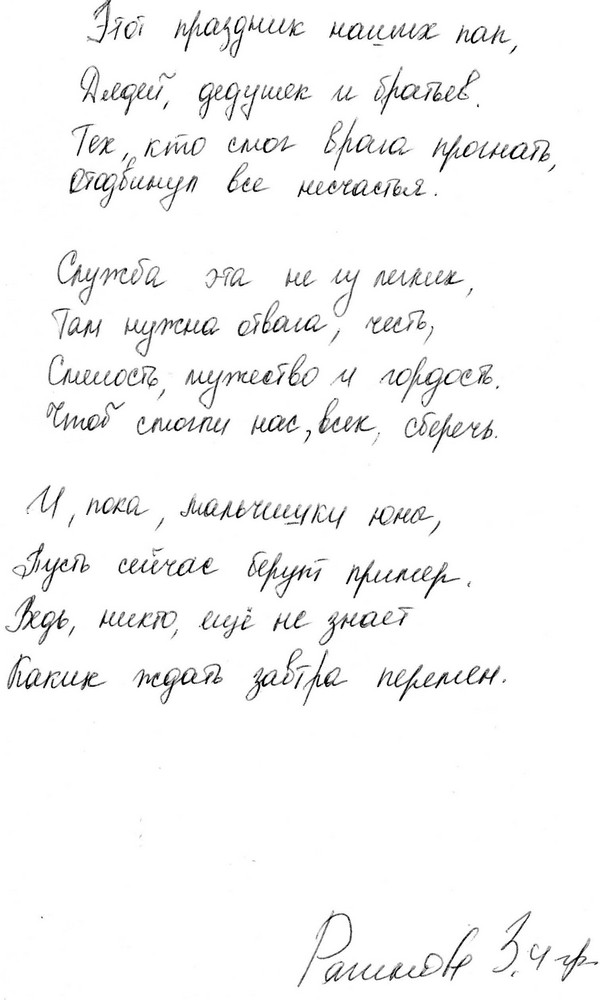 Этот праздник наших пап,
Дядей, дедушек и братьев.
Тех, кто смог врага прогнать,
Отодвинул все несчастья.
Служба эта не из легких,
Там нужна отвага, честь,
Смелость, мужество и гордость.
Чтоб смогли нас, всех, сберечь.
И, пока, мальчишки юны,
Пусть сейчас берут пример.
Ведь, никто, ещё не знает
Каких ждать завтра перемен.
З. 4 гр